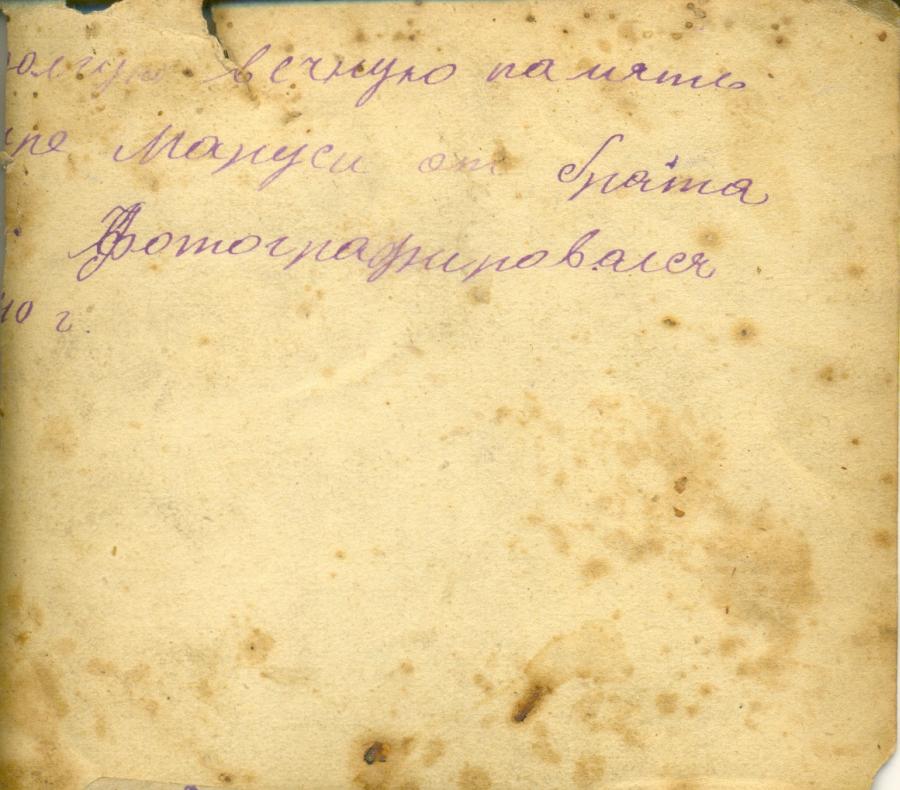 долгую вечную память
тре Маруси от брата
Фотографировался
40 г.